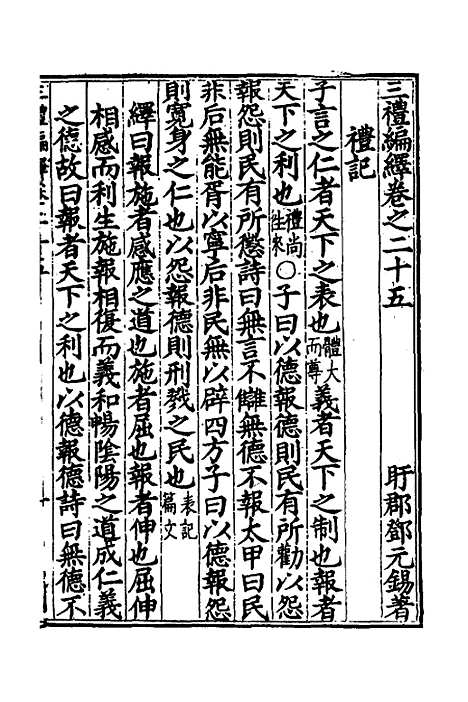 三禮編繹卷之二十五　盱郡鄧元錫著
禮記
子言之仁者天下之表也體大而尊義者天下之制也報者
天下之利也禮尚往來○子曰以德報德則民有所勸以怨
報怨則民有所懲詩曰無言不讎無德不報太甲曰民
非后無能胥以寧后非民無以辟四方子曰以德報怨
則寬身之仁也以怨報德則刑戮之民也表記篇文
繹曰報施者感應之道也施者屈也報者伸也屈伸
相感而利生施報相復而義和暢陰陽之道成仁義
之德故曰報者天下之利也以德報德詩曰無德不